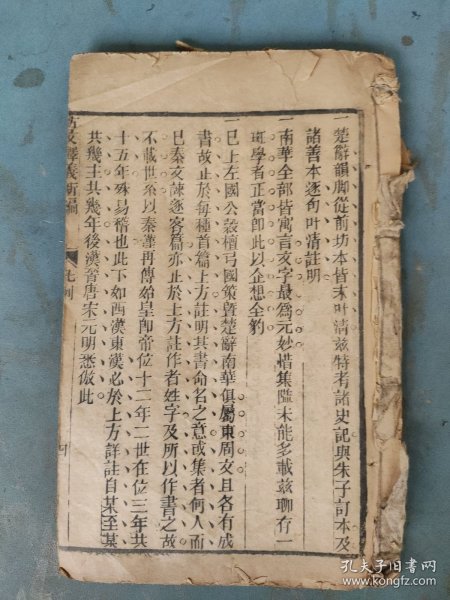 一楚辭韻脚從前坊本皆未叶清兹特考諸史記與朱子訂本及
諸善本逐句叶清註明
一南華全部皆寓言文字最為元妙惜集隘未能多載兹聊存一
斑學者正當卽此以企想全豹
一已上左國公穀檀弓國策曁楚辭南華俱屬東周文且各有成
書故止於每種首篇上方註明其書命名之意或集者何人而
已秦文諫逐客篇亦止於上方註作者姓字及所以作書之故
不載世系以秦藁再傳始皇卽帝位十二年二世在位三年共
十五年殊易稽也此下如西漢東漢必於上方詳註自某至某
共幾主共幾年後漢晉唐宋元明悉倣此
釋義新編
凡例
孔夫子旧书网
www.kongfz.com